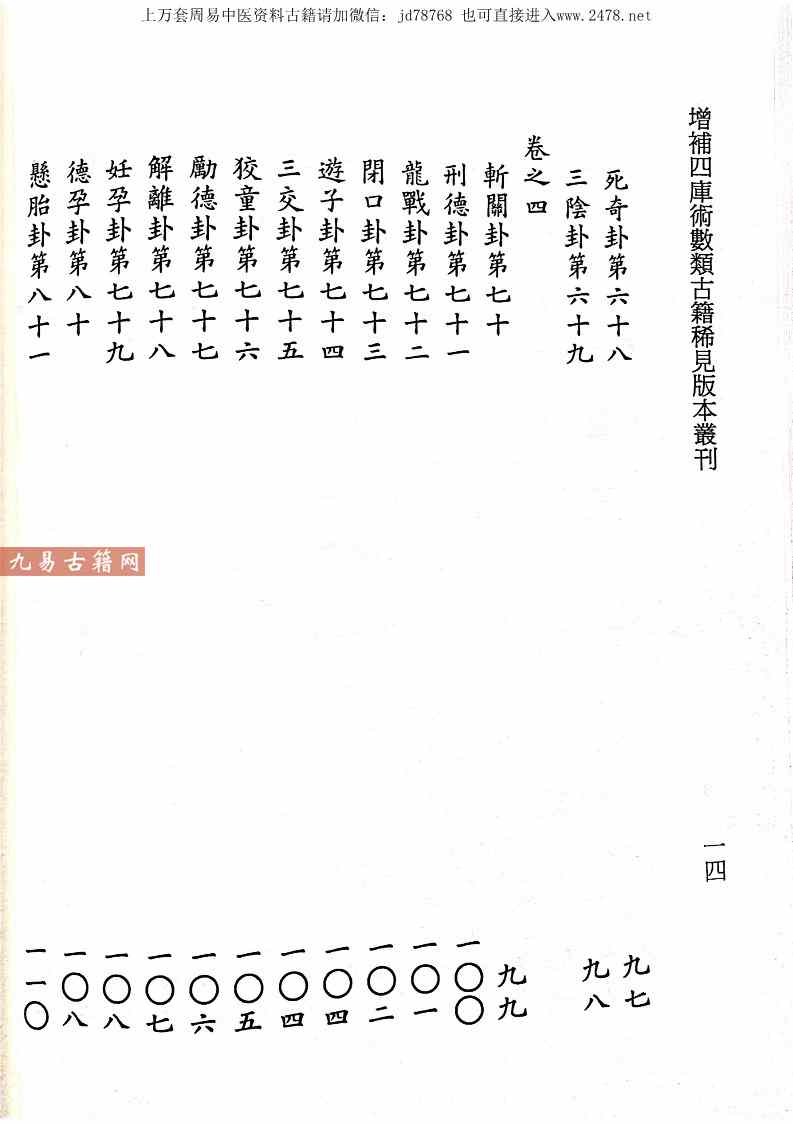 上万套周易中医资料古籍请加微信：jd78768 也可直接进入www.2478.net
增補四庫術數類古籍稀見版本叢刊
一四
死奇卦第六十八 九七
三陰卦第六十九 九八
卷之四
斬關卦第七十 九九
刑德卦第七十一 一〇〇
龍戰卦第七十二 一〇一
閉口卦第七十三 一〇二
遊子卦第七十四 一〇四
三交卦第七十五 一〇四
狡童卦第七十六 一〇五
勵德卦第七十七 一〇六
解離卦第七十八 一〇七
妊孕卦第七十九 一〇八
德孕卦第八十 一〇八
懸胎卦第八十一 一一〇
九易古籍网